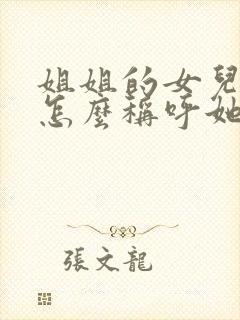 姐姐的女兒
怎麼稱呼她
張文龍